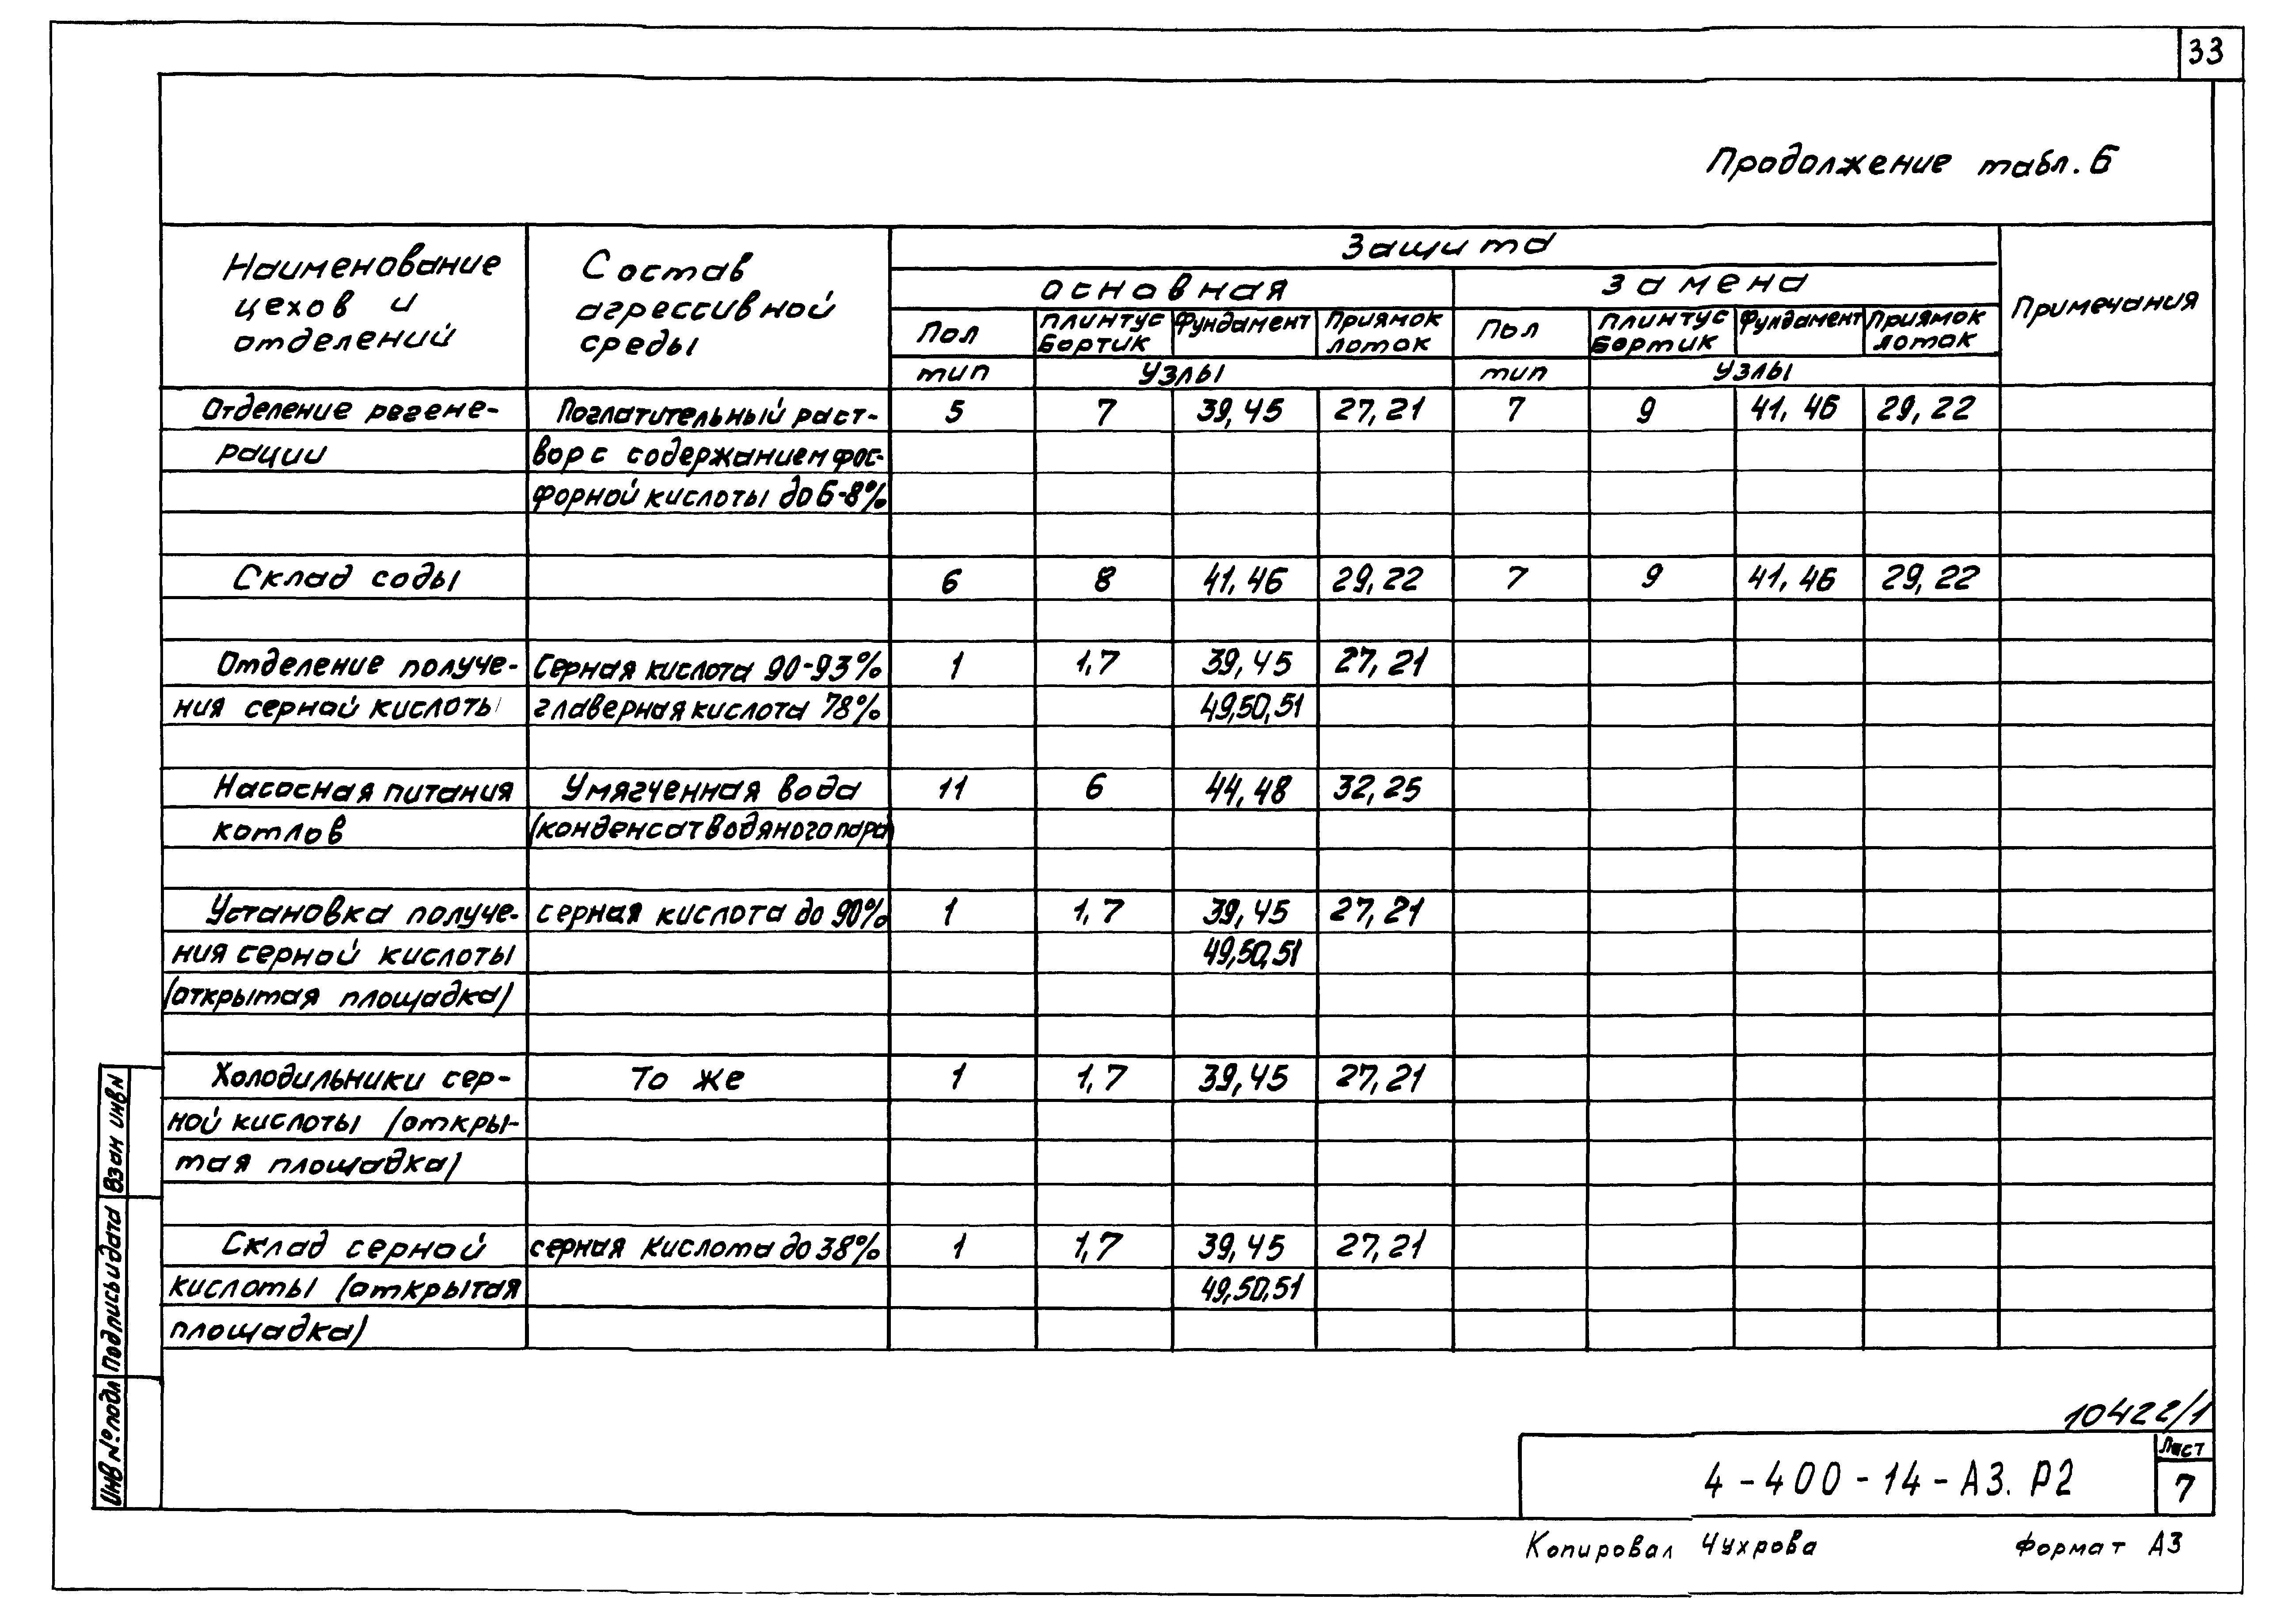 33
Продолжение табл. 6
Наименование цехов и отделений | Состав агрессивной среды | Защита | Примечания
основная | замена
Пол | Плинтус бортик | Фундамент | Приямок лоток | Пол | Плинтус бортик | Фундамент | Приямок лоток
тип | Узлы | тип | Узлы
Отделение регене- | Поглатительный раст- | 5 | 7 | 39,45 | 27,21 | 7 | 9 | 41,46 | 29,22
рации | вор с содержанием фос-
форной кислоты до 6-8%
Склад соды | 6 | 8 | 41,46 | 29,22 | 7 | 9 | 41,46 | 29,22
Отделение получе- | Серная кислота 90-93% | 1 | 1,7 | 39,45 | 27,21
ния серной кислоты | главерная кислота 78% | 49,50,51
Насосная питания | Умягченная вода | 11 | 6 | 44,48 | 32,25
котлов | (конденсат водяного пара)
Установка получе- | серная кислота до 90% | 1 | 1,7 | 39,45 | 27,21
ния серной кислоты | 49,50,51
(открытая площадка)
Холодильники сер- | То же | 1 | 1,7 | 39,45 | 27,21
ной кислоты (откры-
тая площадка)
Склад серной | серная кислота до 38% | 1 | 1,7 | 39,45 | 27,21
кислоты (открытая | 49,50,51
площадка)
Взам инв N
Подпись и дата
Инв № подл
10422/1
4-400-14-А3. Р2
Лист
7
Копировал Чухрова Формат А3